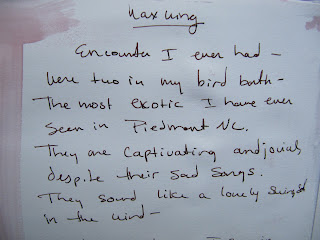 Waxwing
Encounter I ever had –
Were two in my bird bath –
The most exotic I have ever
Seen in Piedmont NC.
They are Captivating and jovial
despite their Sad Songs.
They sound like a lonely
in the wind –